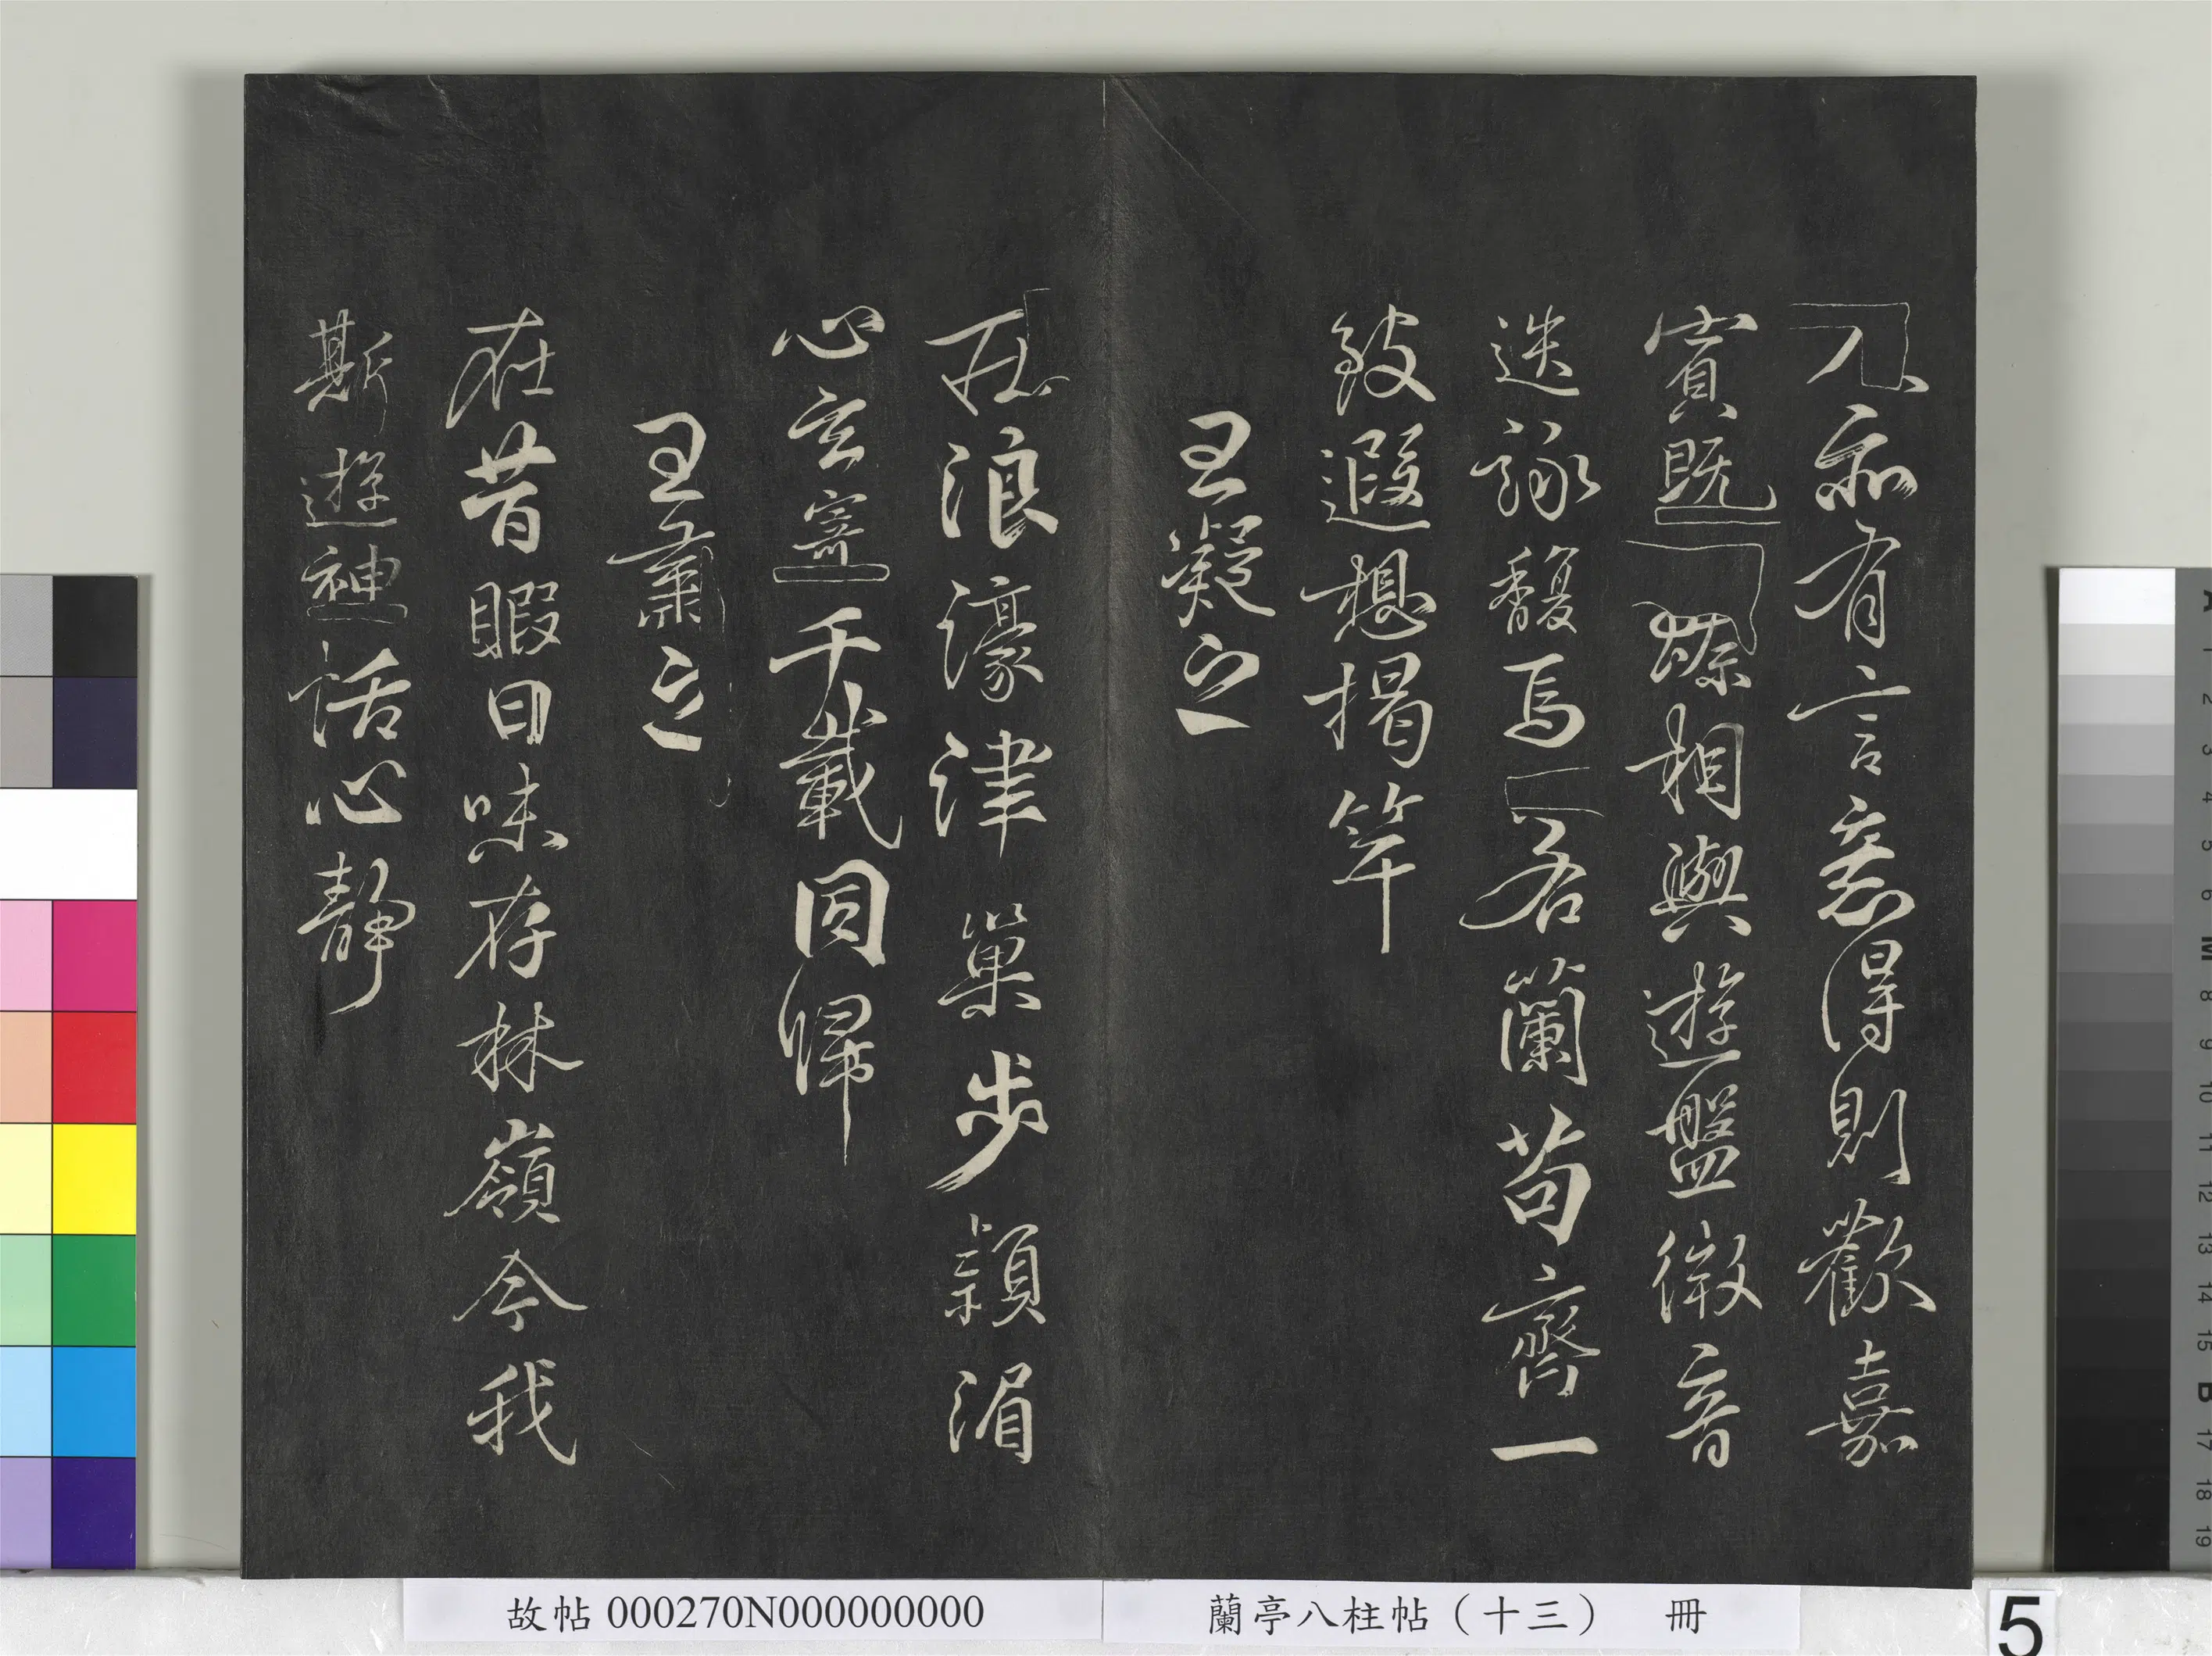 人亦有言意得則歡嘉
賓既臻相與遊盤微音
迭詠馥焉若蘭苟齊一
致遐想揭竿
王凝之
庄浪濠津巢步潁湄
心玄寄千載同歸
王肅之
在昔暇日味存林嶺今我
斯遊神怡心靜
故帖000270N000000000
蘭亭八柱帖（十三） 冊
5